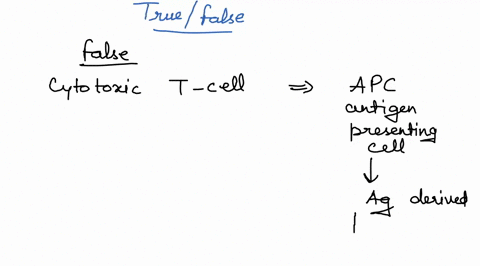 True/false
false
Cytotoxic T-cell ⇒ APC
antigen
presenting
cell
↓
Ag derived